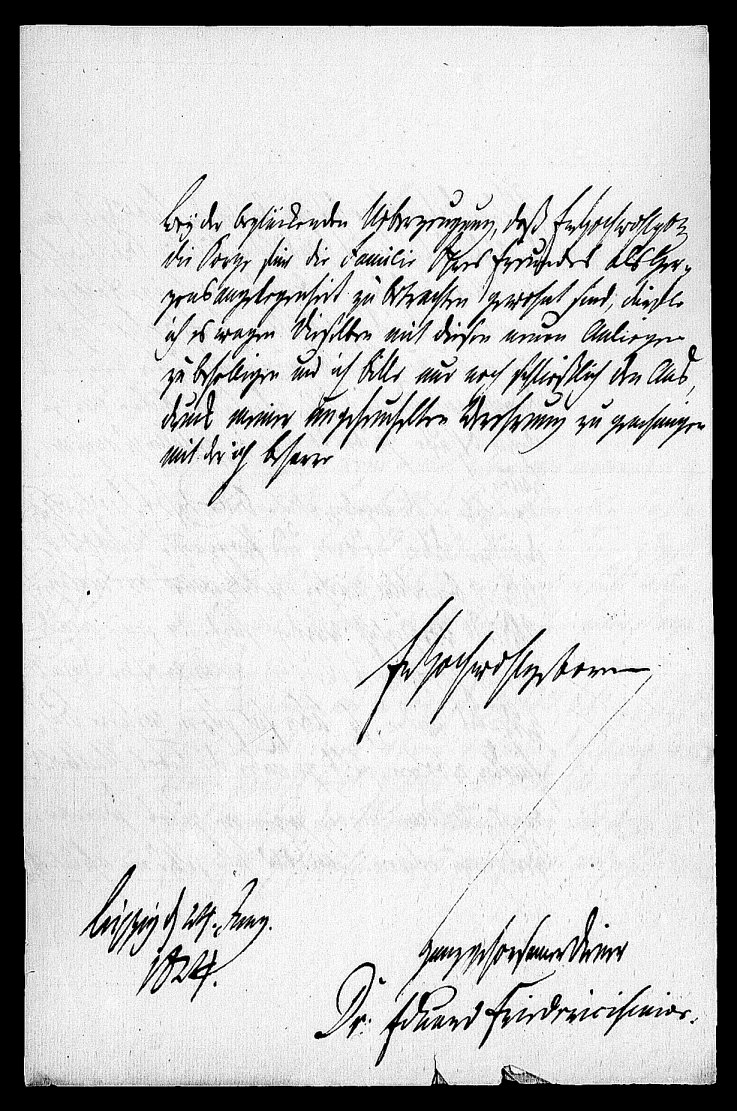 Bey der beglückenden Ueberzeugung, daß Ew Hochwohlgeb
die Sorge für die Familie Ihres Freundes als Her-
zensangelegenheit zu betrachten gewohnt sind, durfte
ich es wagen Dieselben mit diesem neuen Anliegen
zu behelligen und ich bitte nur noch schließlich den Aus,
druck meiner ungeheuchelten Verehrung zu genehmigen
mit der ich beharre
Ew Hochwohlgeboren
Leipzig d 24. Juny.
1824.
ganz gehorsamer Diener
Dr. Eduard Friederici senior.